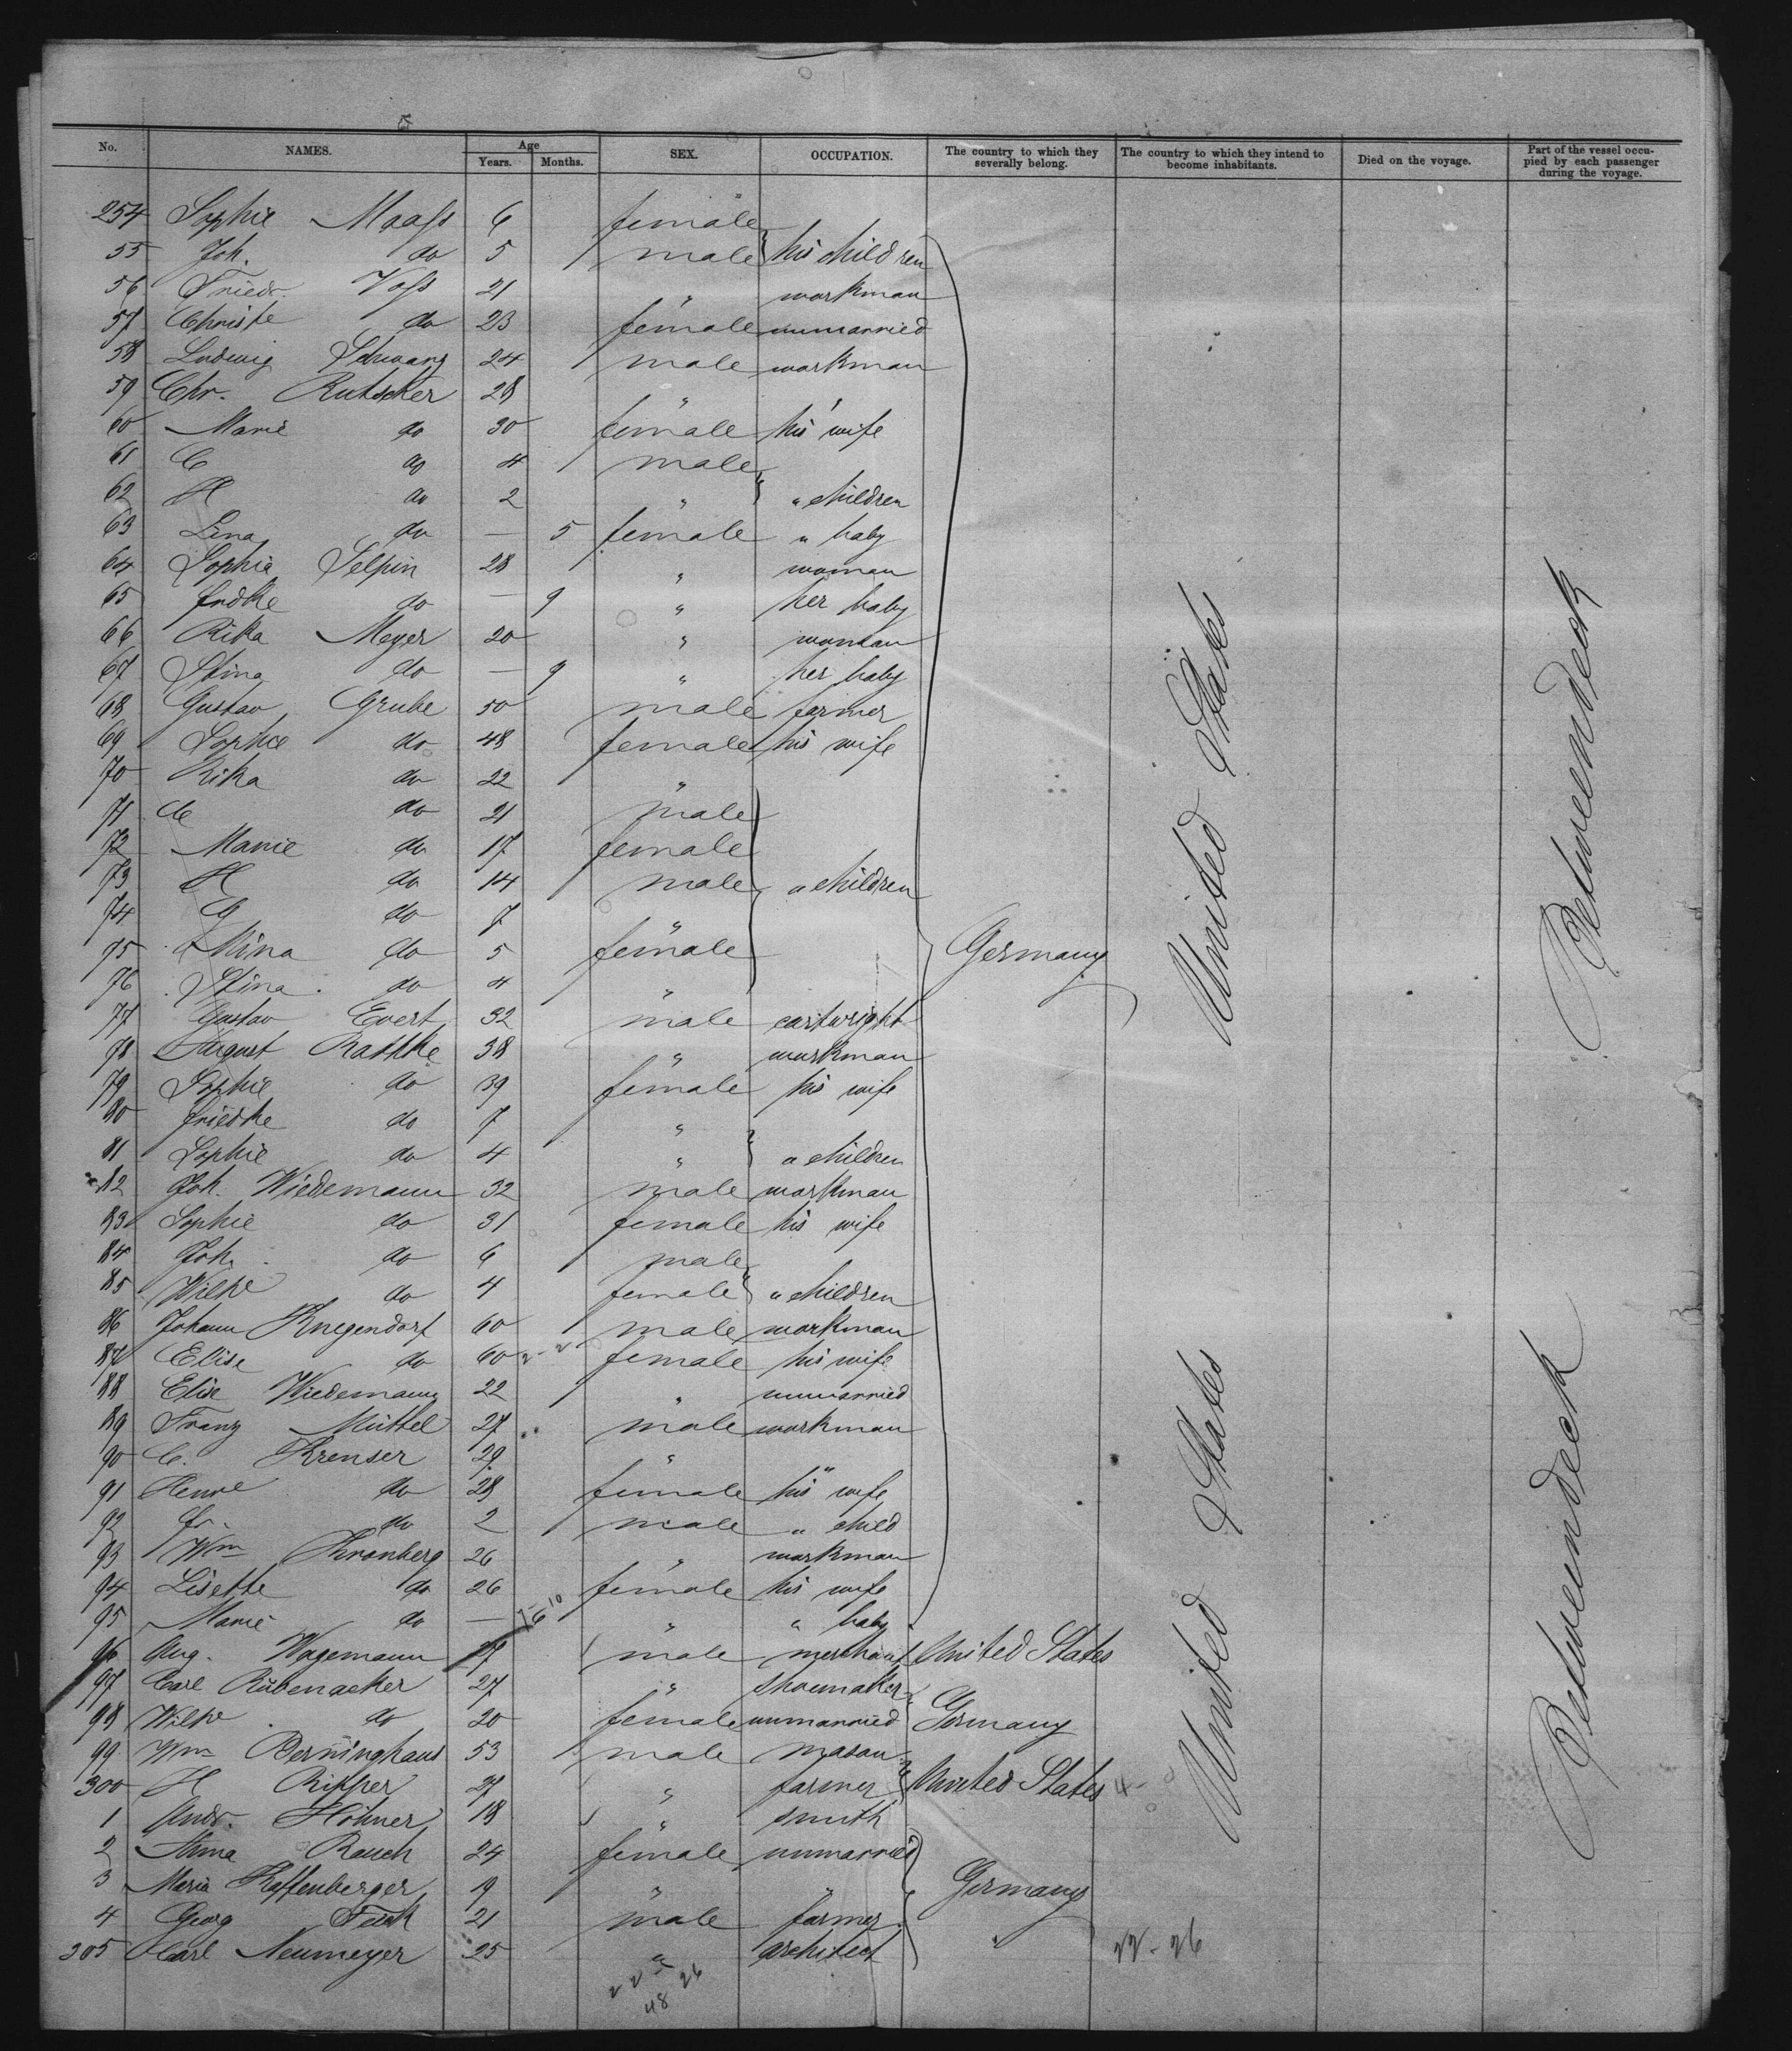 No. NAMES. Age Years. Months. SEX. OCCUPATION. The country to which they severally belong. The country to which they intend to become inhabitants. Died on the voyage. Part of the vessel occupied by each passenger during the voyage.
254 Sophie Maass 6 female
55 Joh. do 5 male his children
56 Friedr. Voss 21 " workman
57 Christe do 23 female unmarried
58 Ludwig Schwarz 24 male workman
59 Chr. Rutscher 28 " "
60 Marie do 30 female his wife
61 C do 4 male
62 H do 2 " " children
63 Lina do — 5 female " baby
64 Sophie Selpin 28 " woman
65 Frdke do — 9 " her baby
66 Rika Meyer 20 " woman
67 Stina do — 9 " her baby
68 Gustav Grube 50 male farmer
69 Sophie do 48 female his wife
70 Rika do 22 "
71 C do 21 male
72 Marie do 17 female
73 H do 14 male " children
74 G do 7 "
75 Mina do 5 female Germany United States Betweendeck
76 Stina do 4 "
77 Gustav Evert 32 male cartwright
78 August Rattke 38 " workman
79 Sophie do 39 female his wife
80 Friedke do 7 "
81 Sophie do 4 " " children
82 Joh. Wiedemann 32 male workman
83 Sophie do 31 female his wife
84 Joh. do 6 male
85 Wilke do 4 female " children
86 Johann Knegendorf 60 male workman
87 Elise do 60 female his wife
88 Elise Wiedemann 22 " unmarried
89 Franz Müttel 27 male workman
90 C. Krenser 29 " "
91 Henre do 28 female his wife
92 Fr. do 2 male " child
93 Wm Kronberg 26 " workman
94 Lisette do 26 female his wife
95 Marie do — " baby
96 Aug. Wagemann 27 male merchant United States
97 Carl Rübenacker 27 " shoemaker
98 Wilke do 20 female unmarried Germany
99 Wm Berninghaus 53 male mason
300 H Ripper 27 " farmer United States
1 Andr. Höhner 18 " smith
2 Anna Rauch 24 female unmarried United States Betweendeck
3 Maria Haffenberger 19 " " Germany
4 Georg 21 male farmer
305 Carl Neumeyer 25 " architect " 22-26
48 26